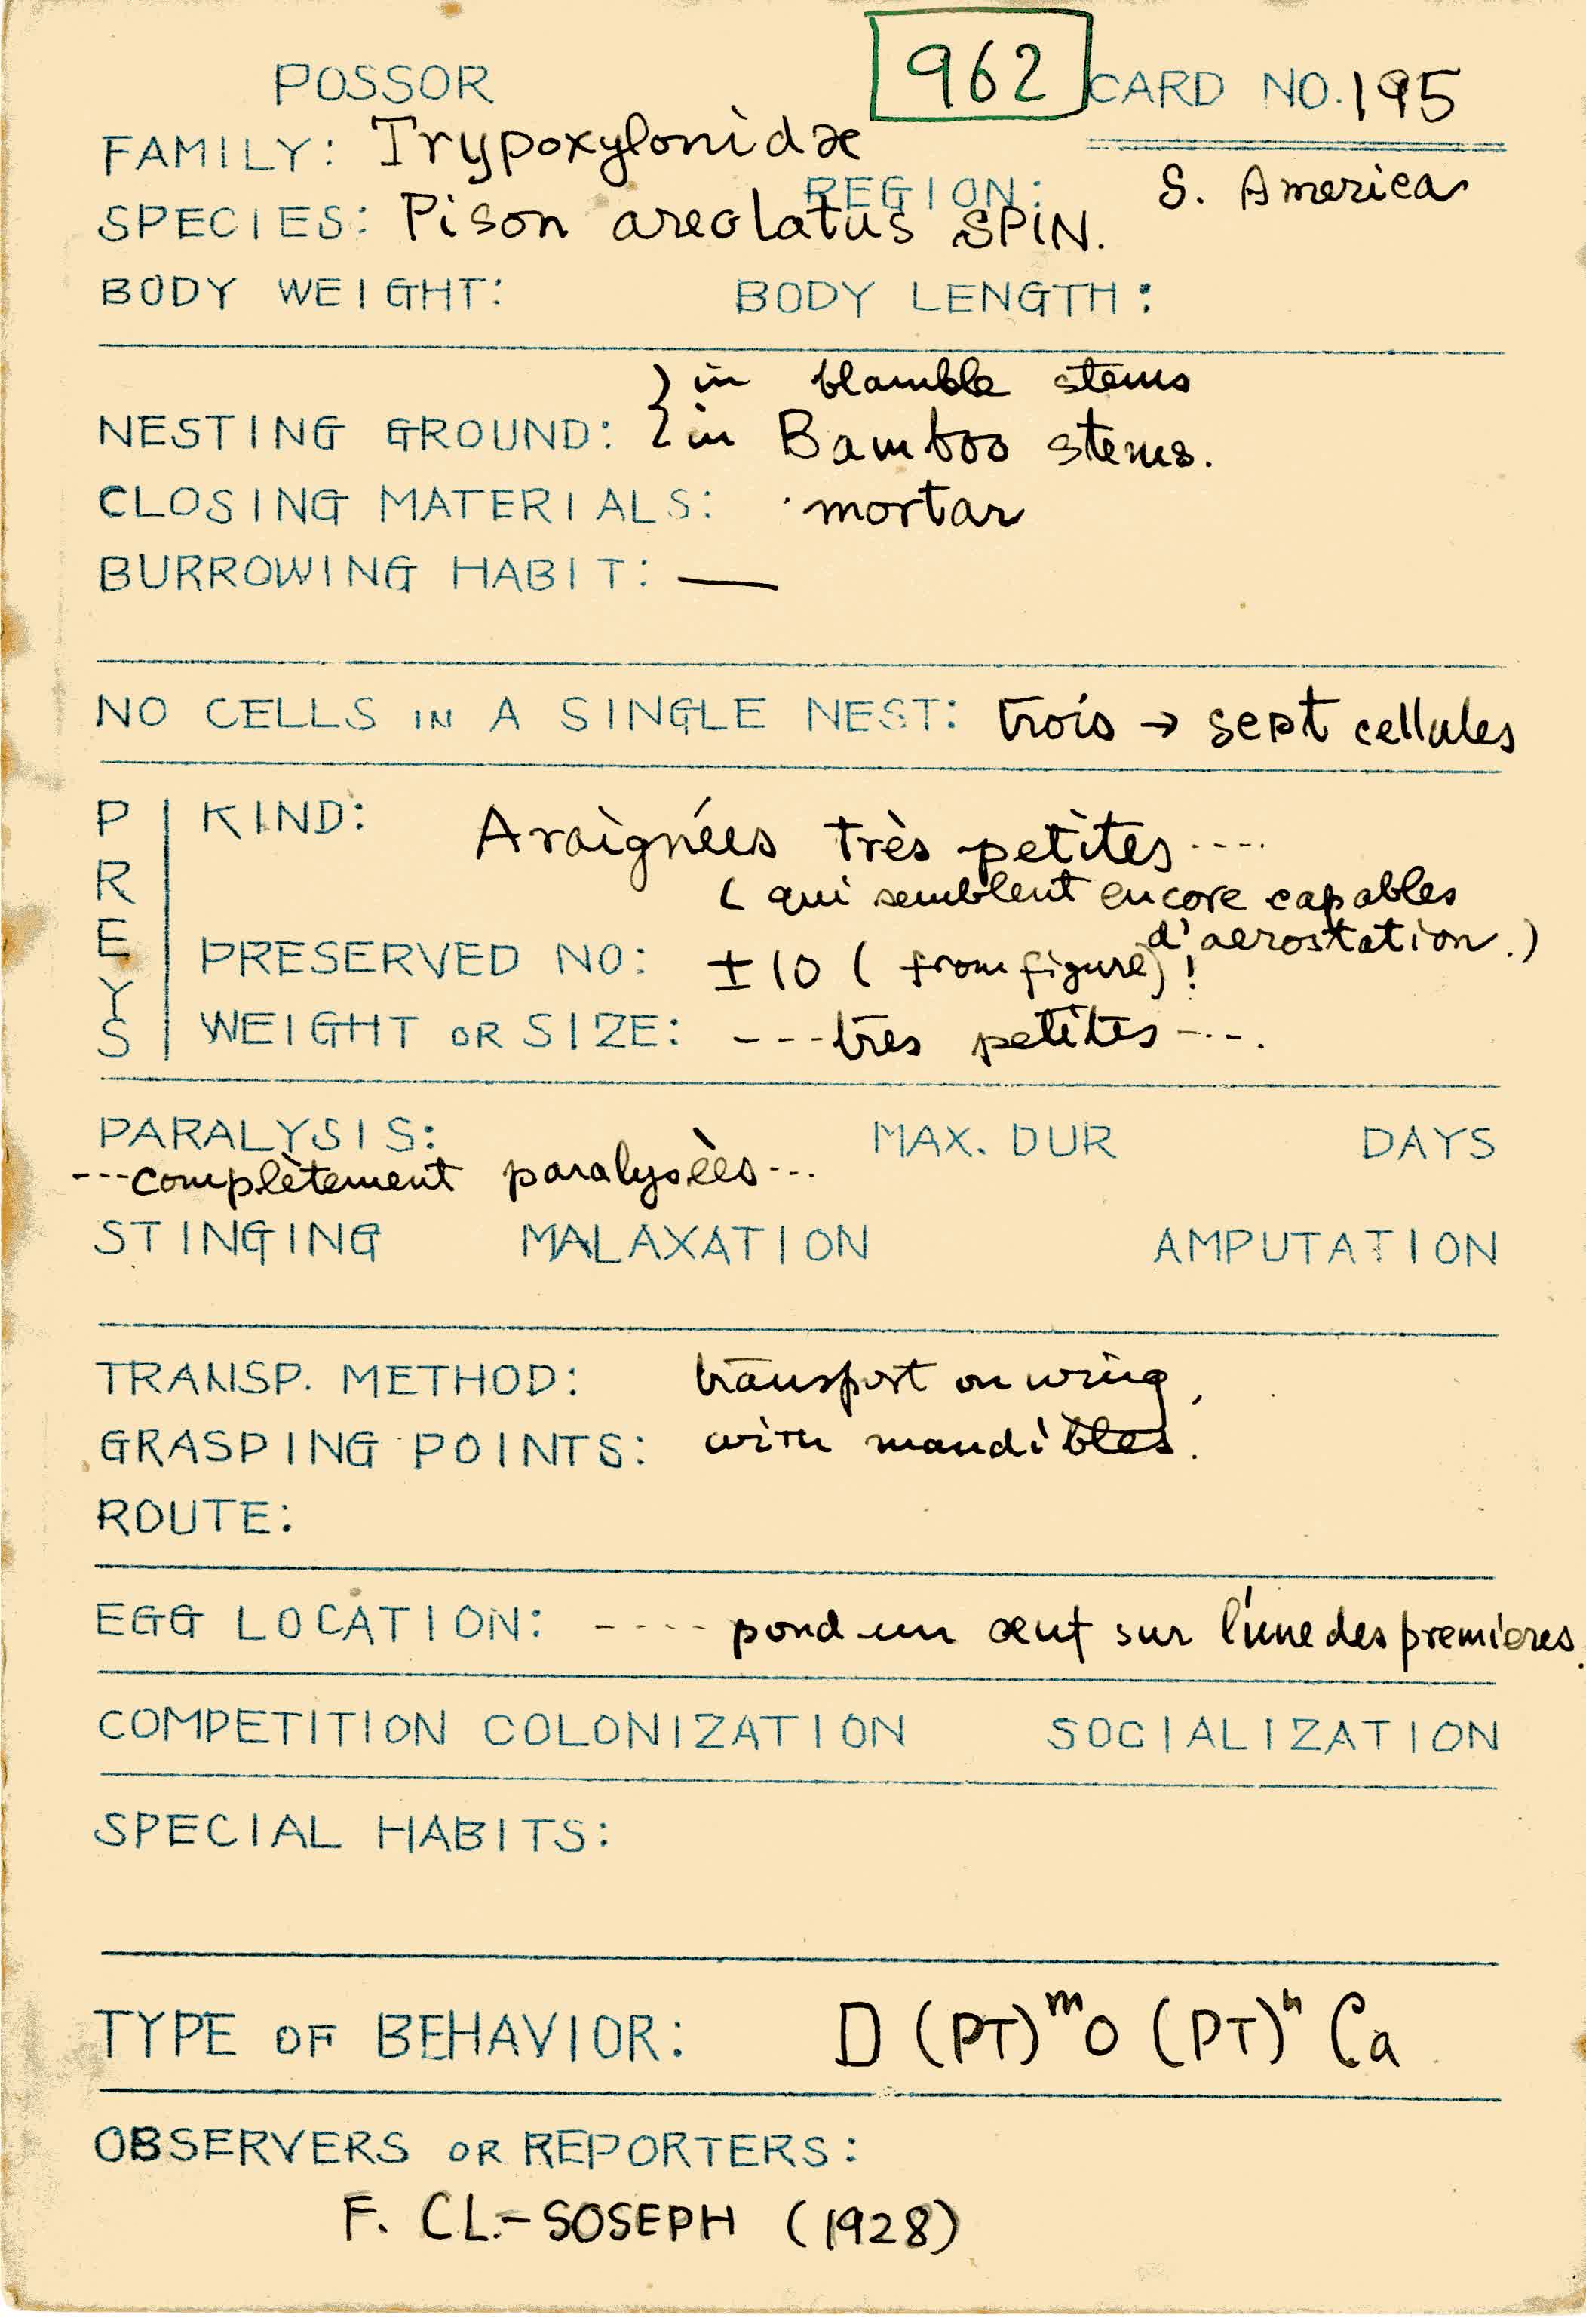 POSSOR 962 CARD NO. 195
FAMILY: Trypoxylonidæ
REGION: S. America
SPECIES: Pison areolatus SPIN.
BODY WEIGHT: BODY LENGTH:
} in blamble stems
NESTING GROUND: } in Bamboo stems.
CLOSING MATERIALS: mortar
BURROWING HABIT: —
NO CELLS IN A SINGLE NEST: trois → sept cellules
PREYS
KIND: Araignées très petites ----
( qui semblent encore capables
d'aerostation.)
PRESERVED NO: ±10 ( from figure) !
WEIGHT OR SIZE: ---tres petites ---.
PARALYSIS: MAX. DUR DAYS
---complètement paralysèes---
STINGING MALAXATION AMPUTATION
TRANSP. METHOD: transport on wing,
GRASPING POINTS: with mandibles.
ROUTE:
EGG LOCATION: ---- pond un œuf sur l'une des premieres.
COMPETITION COLONIZATION SOCIALIZATION
SPECIAL HABITS:
TYPE OF BEHAVIOR: D (PT)ᵐ O (PT)ⁿ Ca
OBSERVERS OR REPORTERS:
F. CL.-SOSEPH (1928)